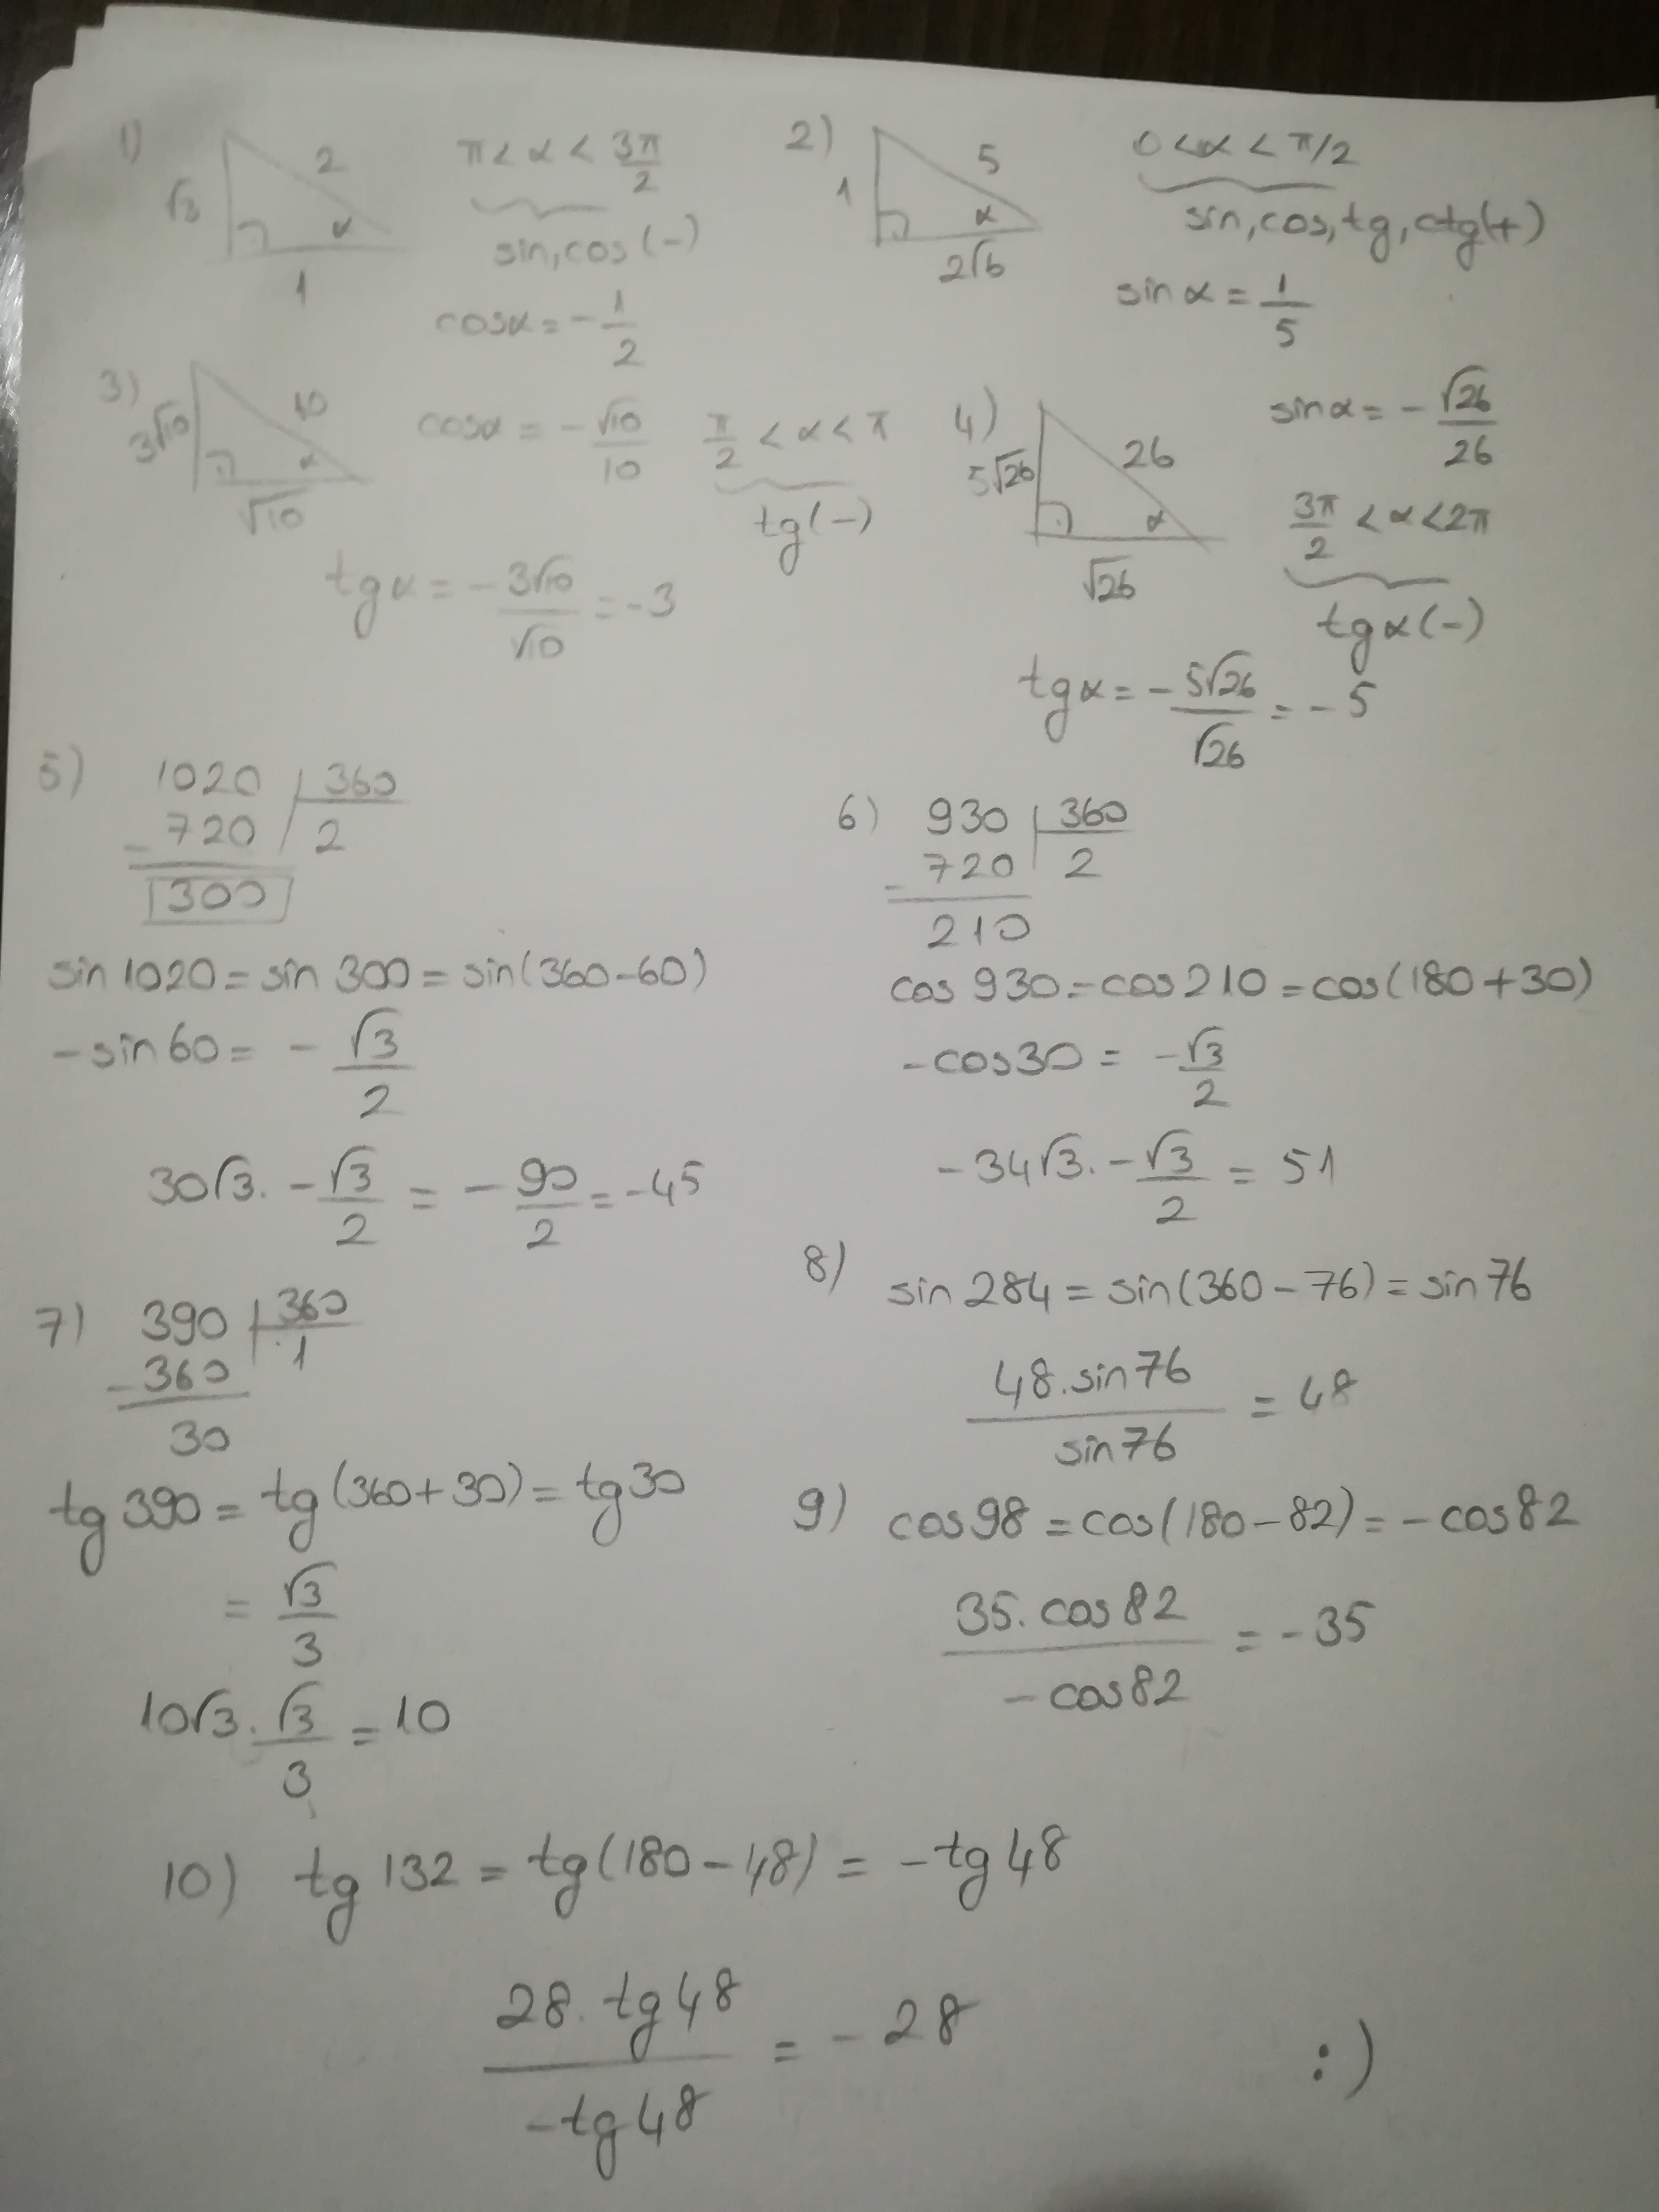 1) √3 2 α 1 π < α < 3π/2
sin, cos (-)
cosα = - 1/2
2) 1 5 α 2√6 0 < α < π/2
sin, cos, tg, ctg(+)
sin α = 1/5
3) 3√10 10 α √10 cosα = - √10/10 π/2 < α < π
tg (-)
tgα = - 3√10/√10 = -3
4) 5√26 26 α √26 sinα = - √26/26
3π/2 < α < 2π
tgα (-)
tgα = - 5√26/√26 = - 5
5) 1020 | 360
- 720 | 2
300
sin 1020 = sin 300 = sin(360-60)
- sin 60 = - √3/2
30√3 . - √3/2 = - 90/2 = -45
6) 930 | 360
- 720 | 2
210
cos 930 = cos 210 = cos(180+30)
- cos30 = - √3/2
- 34√3 . - √3/2 = 51
7) 390 | 360
- 360 | 1
30
tg 390 = tg (360+30) = tg 30
= √3/3
10√3 . √3/3 = 10
8) sin 284 = sin(360 - 76) = sin 76
48 . sin 76 / sin 76 = 48
9) cos 98 = cos(180 - 82) = - cos 82
35 . cos 82 / - cos 82 = - 35
10) tg 132 = tg (180 - 48) = - tg 48
28 . tg 48 / - tg 48 = - 28
:)